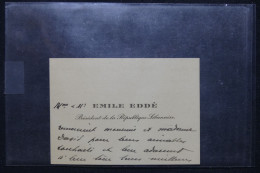 Mme & Mr EMILE EDDÉ
Président de la République Libanaise
remercient et madame
pour leurs aimables
souhaits et leur adressent
leurs meilleurs